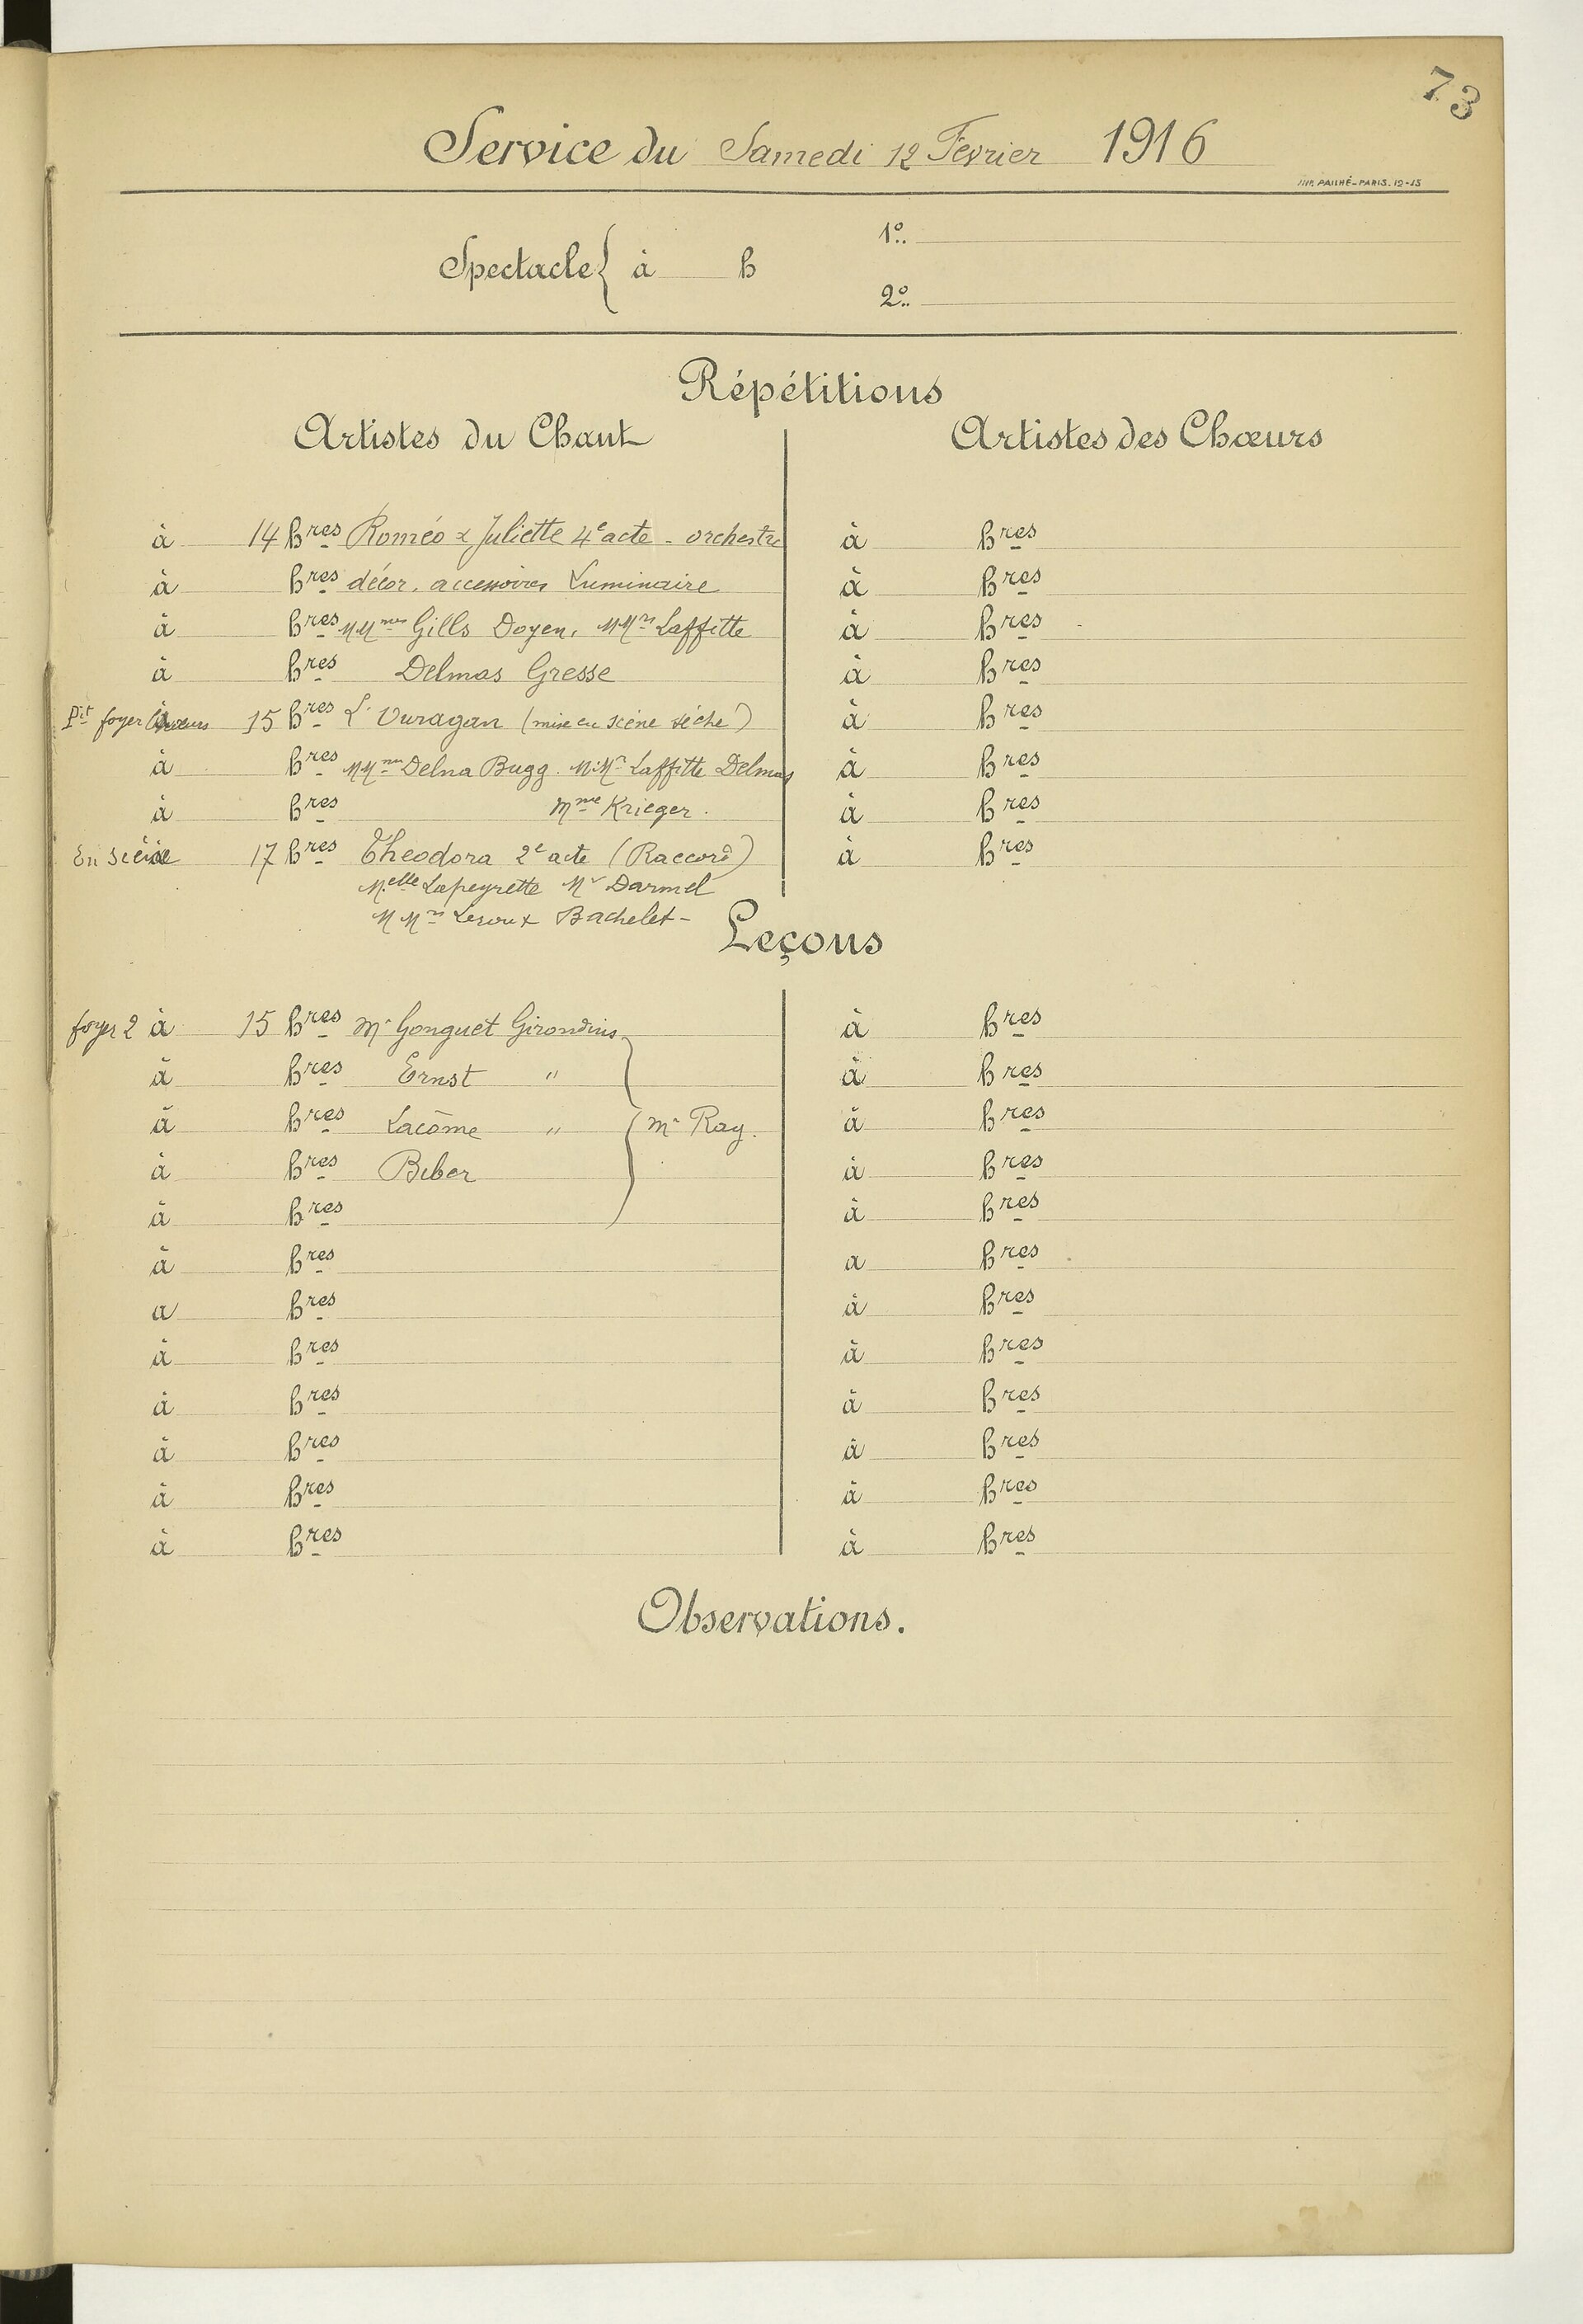 73
Service du Samedi 12 Fevrier 1916
IMP. PAILHÉ-PARIS. 12-15
Spectacle { à h
1º
2º
Répétitions
Artistes du Chant
à 14 hres Roméo & Juliette 4e acte - orchestre
à hres décor, accessoires Luminaire
à hres MMmes Gills Doyen, MMrs Laffitte
à hres Delmas Gresse
Pit foyer à Chœurs 15 hres L'Ouragan (mise en scène sèche)
à hres MMmes Delna Bugg. M.Mrs Laffitte Delmas
à hres Mme Krieger.
En Scène à 17 hres Theodora 2e acte (Raccord)
Melle Lapeyrette Mr Darmel
MMrs Leroux Bachelet -
Artistes des Chœurs
à hres
à hres
à hres
à hres
à hres
à hres
à hres
à hres
Leçons
foyer 2 à 15 hres Mr Gonguet Girondins
à hres Ernst "
à hres Lacôme " } Mr Ray.
à hres Biber
à hres
à hres
a hres
à hres
à hres
à hres
à hres
à hres
à hres
à hres
à hres
à hres
à hres
a hres
à hres
à hres
à hres
à hres
à hres
à hres
Observations.